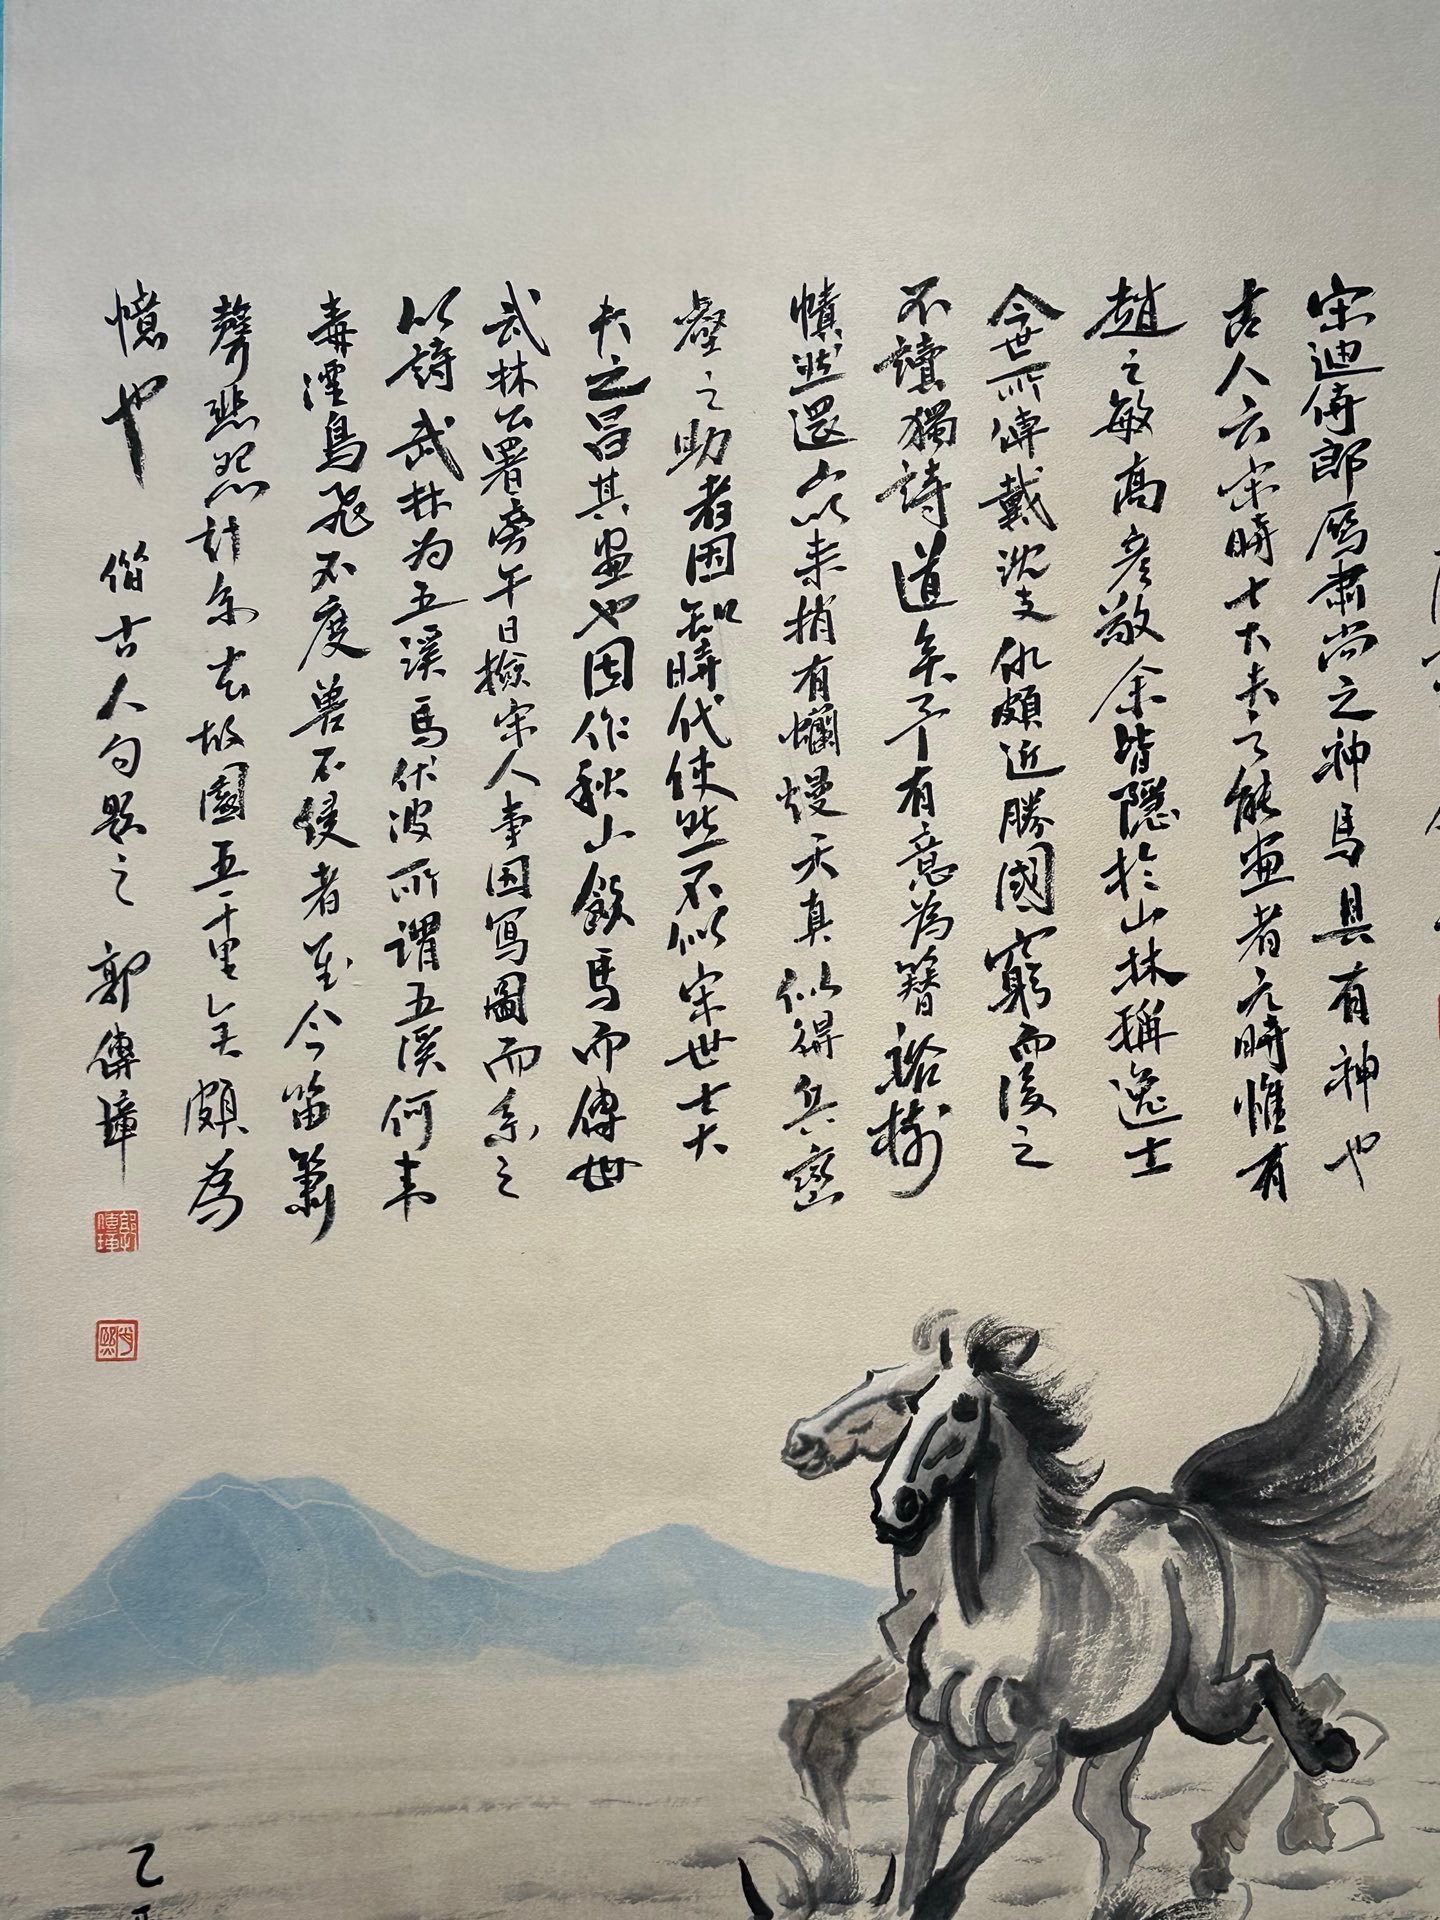 宋迪侍郎雁肃尚之神馬具有神也
古人云宋時士大夫之能画者元時惟有
趙之敏高彦敬余皆隱於山林稱逸士
今世所傳戴沈文仇頗近勝國窮而後之
不讀獨詩道矣予有意為簪裕樹
憤然還山以来稍有爛熳天真似得兵巒
壑之助者因知時代使然不似宋世士大
夫之昌其画也因作秋山飲馬而傳世
武林公署旁午日撿宋人事因写圖而系之
以詩武林为五溪馬伏波所谓五溪何
毒淫鳥飛不度兽不侵者今笛簫
聲悲怨计余去故園五千里矣頗為
憶也 借古人句題之 郭傳璋
郭傳璋
乙